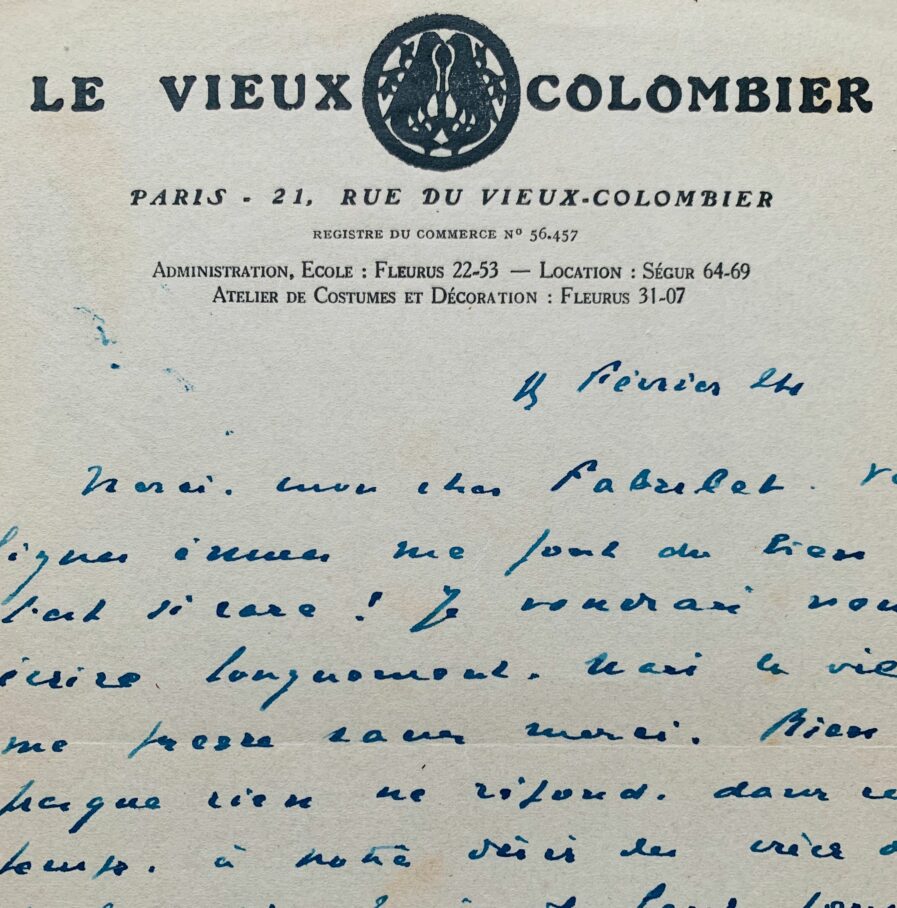 LE VIEUX COLOMBIER
PARIS - 21, RUE DU VIEUX-COLOMBIER
REGISTRE DU COMMERCE Nº 56.457
ADMINISTRATION, ECOLE : FLEURUS 22-53 — LOCATION : SÉGUR 64-69
ATELIER DE COSTUMES ET DÉCORATION : FLEURUS 31-07
Février 24
Merci, mon cher Fabulet.
lignes émues me font du bien
C'est si rare ! Je voudrais vous
écrire longuement. Mais la vie
me presse sans merci. Rien
presque rien ne répond, dans ce
temps, à notre désir de